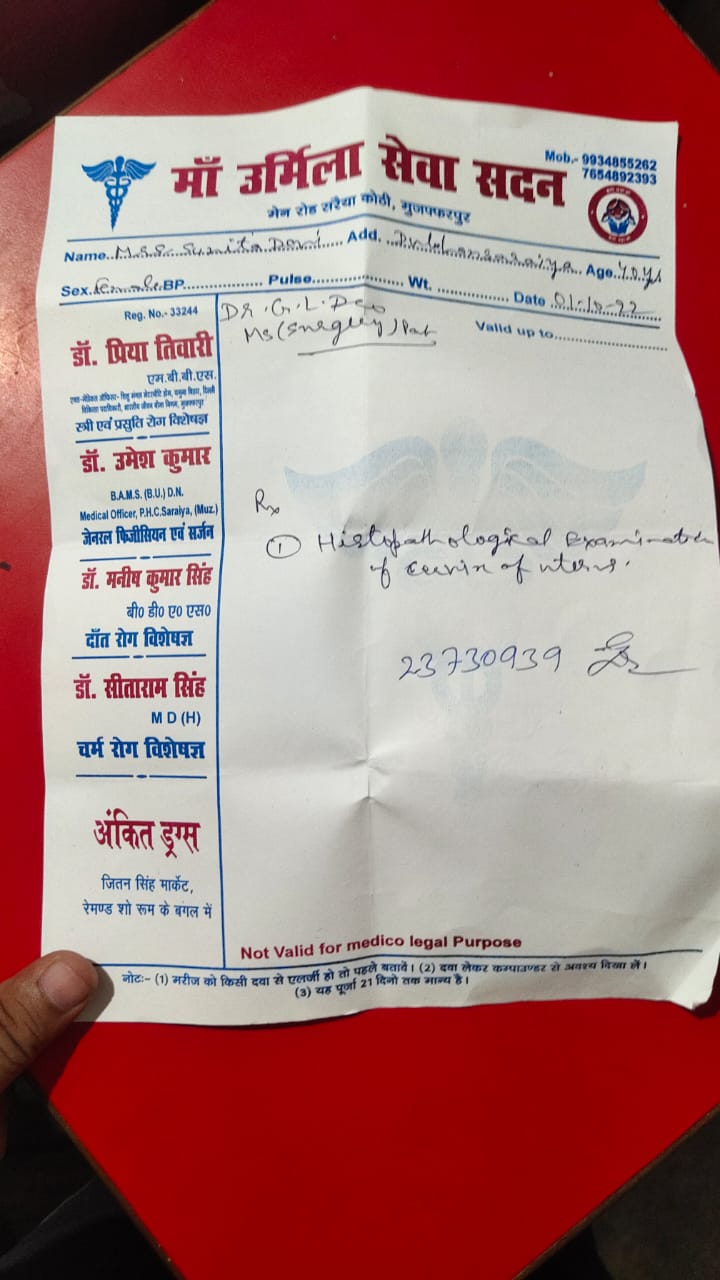 माँ उर्मिला सेवा सदन
Mob.- 9934855262
7654892393
मेन रोड सरैया कोठी, मुजफ्फरपुर
Name. Sunita Devi Add. Age. 40 yrs
Sex. Female BP Pulse Wt. Date 01-10-22
Reg. No.- 33244
Dr. G. L. Deo
MS (Surgery) Pat
Valid up to
डॉ. प्रिया तिवारी
एम.बी.बी.एस.
स्त्री एवं प्रसुति रोग विशेषज्ञ
डॉ. उमेश कुमार
B.A.M.S. (B.U.) D.N.
Medical Officer, P.H.C.Saraiya, (Muz.)
जेनरल फिजीसियन एवं सर्जन
डॉ. मनीष कुमार सिंह
बी० डी० ए० एस०
दाँत रोग विशेषज्ञ
डॉ. सीताराम सिंह
M D (H)
चर्म रोग विशेषज्ञ
अंकित ड्रग्स
जितन सिंह मार्केट,
रेमण्ड शो रूम के बगल में
Rx
① Histopathological Examination
of of uterus.
23730939
Not Valid for medico legal Purpose
नोटः- (1) मरीज को किसी दवा से एलर्जी हो तो पहले बतावें। (2) दवा लेकर कम्पाउण्डर से अवश्य दिखा लें।
(3) यह पूर्जा 21 दिनो तक मान्य है।